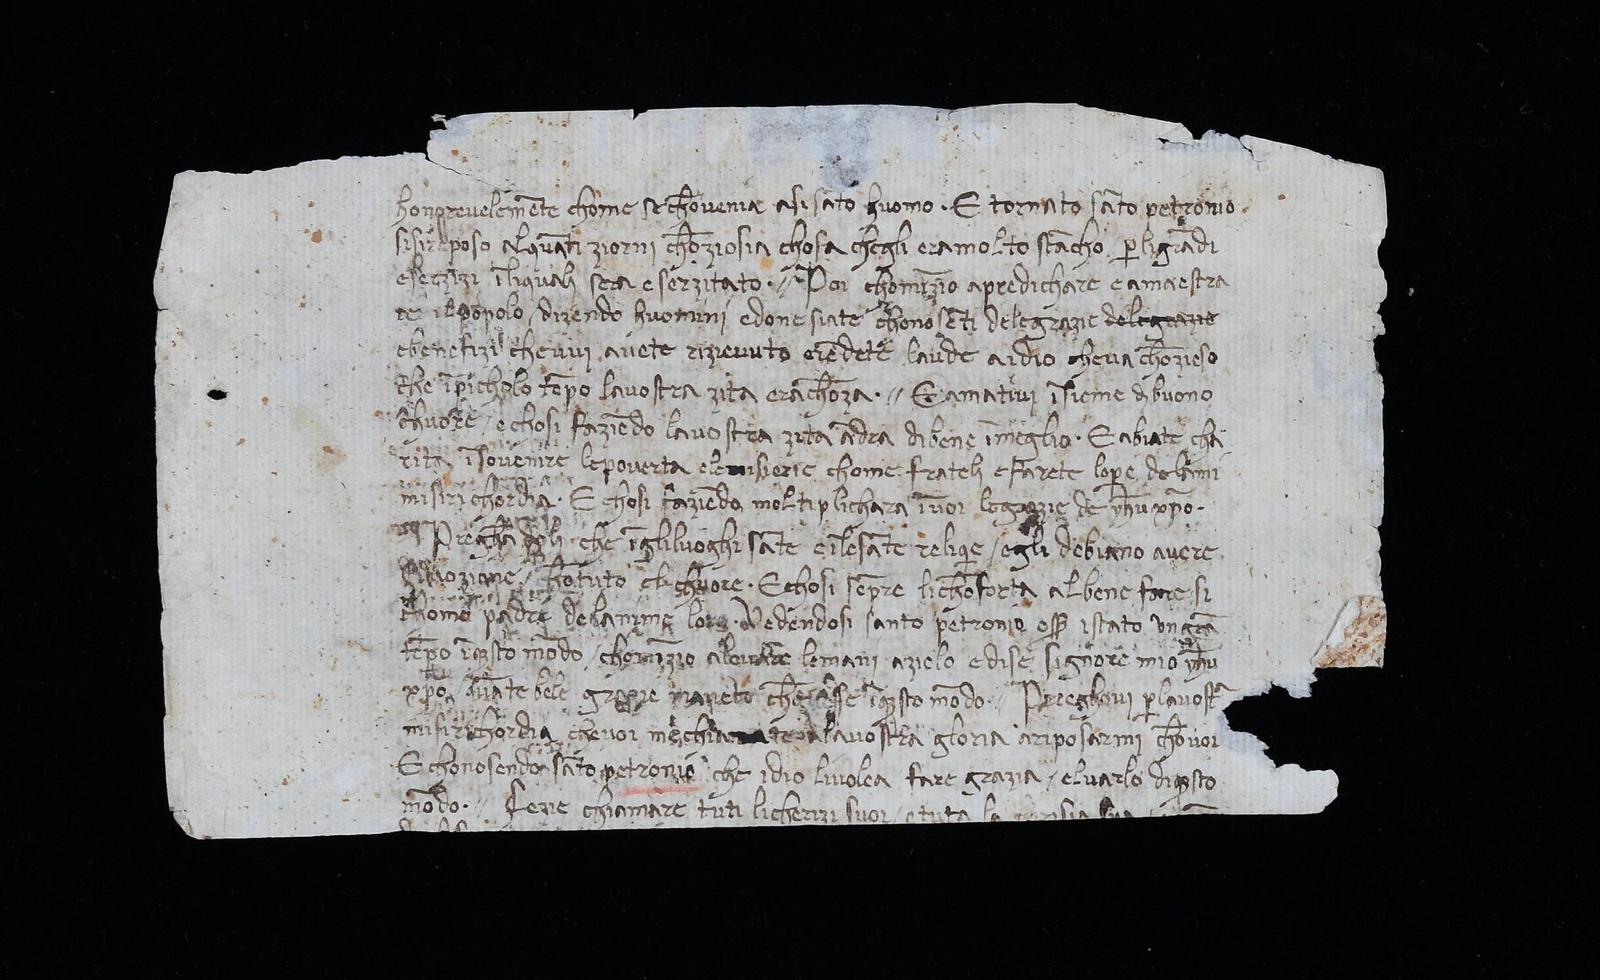 honorevelemēte chome se chōvenia asi sāto huomo · E tornato sāto petronio
si si reposo alquāti ziorni chōziosia chosa chegli era molto stācho p li grādi
eserzizi ī li quali sera eserzitato · // Poi chomīzio a predichare e amaestra
re il popolo / dizendo huomini e done siate chonosēti dele grazie dele grazie
e benefizi che vui avete rizievuto e rēdete laude a idio che va chōzieso
che ī picholo tēpo la vostra zita e rachōza · // E amativi īsieme di buono
chuore / e chosi faziēdo la vostra zita ādra di bene ī meglio · E abiate cha
rita ī sovenire le poverta e le miserie chome frateli e farete lope de la
misirichordia · E chosi faziēdo moltiplichara ī voi le grazie de yhu xpo ·
che ī gli luoghi sāte e ī le sāte reliqe / egli debiano avere
chō tuto el chuore · E chosi sēpre li chōforta al bene fare si
chome padre de lanime loro · Vedendosi santo petronio esse istato un grā
tēpo ī qsto mōdo / chomīzio a levare le mani a zielo e dise signore mio yhu
xpo quāte bele grazie ī qsto mōdo // Preeghovi p la vostra
misirichordia che voi me a la vostra gloria a riposarmi chō voi
E chonosendo sāto petronio che idio li volea fare grazia / e levarlo di qsto
mōdo · // Fezie chiamare tuti li cherizi suoi / e tuta la